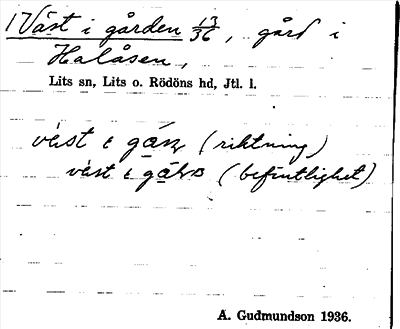 1 Väst i gården 13/36, gård i
Halåsen,
Lits sn, Lits o. Rödöns hd, Jtl. l.
väst i (riktning)
väst i (befintlighet)
A. Gudmundson 1936.